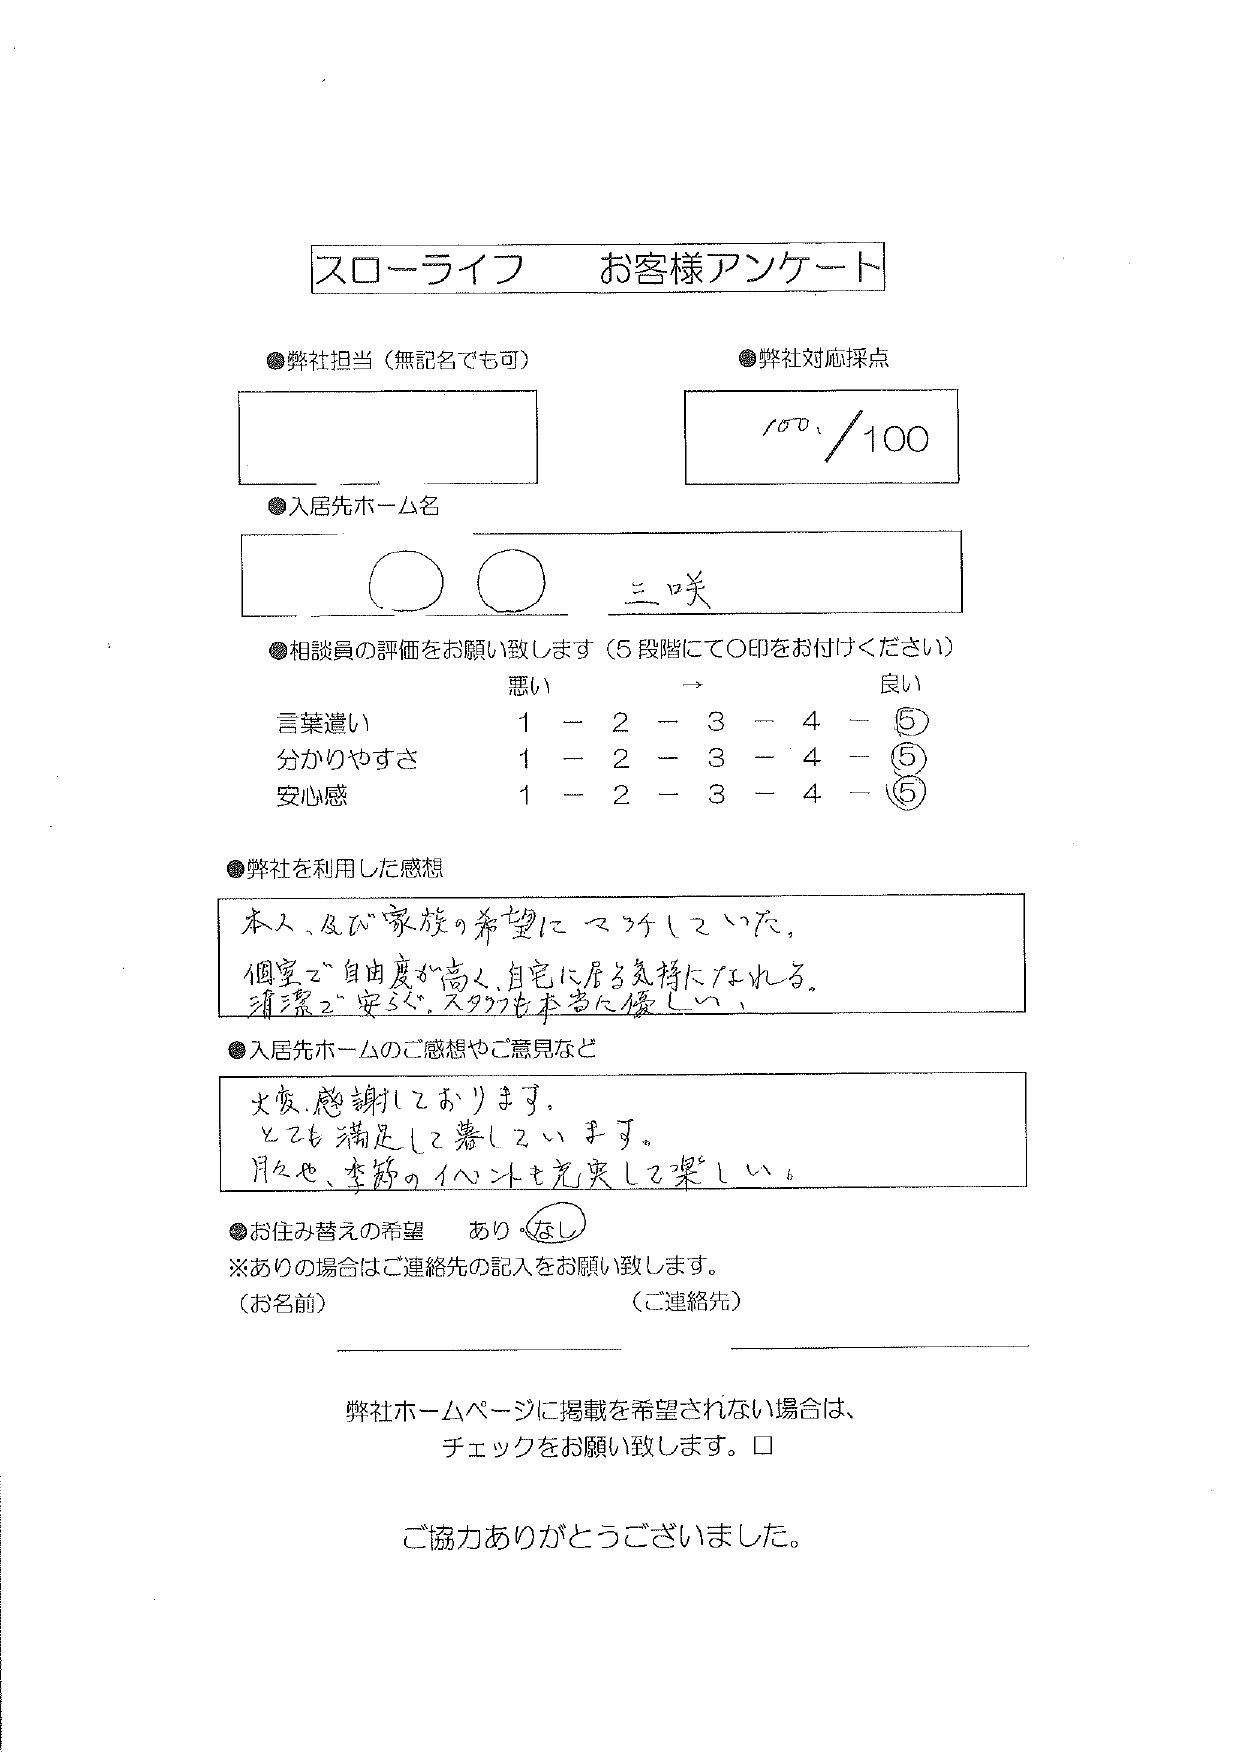 スローライフ　お客様アンケート
●弊社担当（無記名でも可）　●弊社対応採点
100 /100
●入居先ホーム名
〇〇 三咲
●相談員の評価をお願い致します（5段階にて〇印をお付けください）
悪い　→　良い
言葉遣い　1 － 2 － 3 － 4 － 5
分かりやすさ　1 － 2 － 3 － 4 － 5
安心感　1 － 2 － 3 － 4 － 5
●弊社を利用した感想
本人、及び家族の希望にマッチしていた。
個室で自由度が高く、自宅に居る気持になれる。
清潔で安らぐ。スタッフも本当に優しい、
●入居先ホームのご感想やご意見など
大変、感謝しております。
とても満足して暮しています。
月々や、季節のイベントも充実して楽しい。
●お住み替えの希望　あり・なし
※ありの場合はご連絡先の記入をお願い致します。
（お名前）　（ご連絡先）
弊社ホームページに掲載を希望されない場合は、
チェックをお願い致します。□
ご協力ありがとうございました。